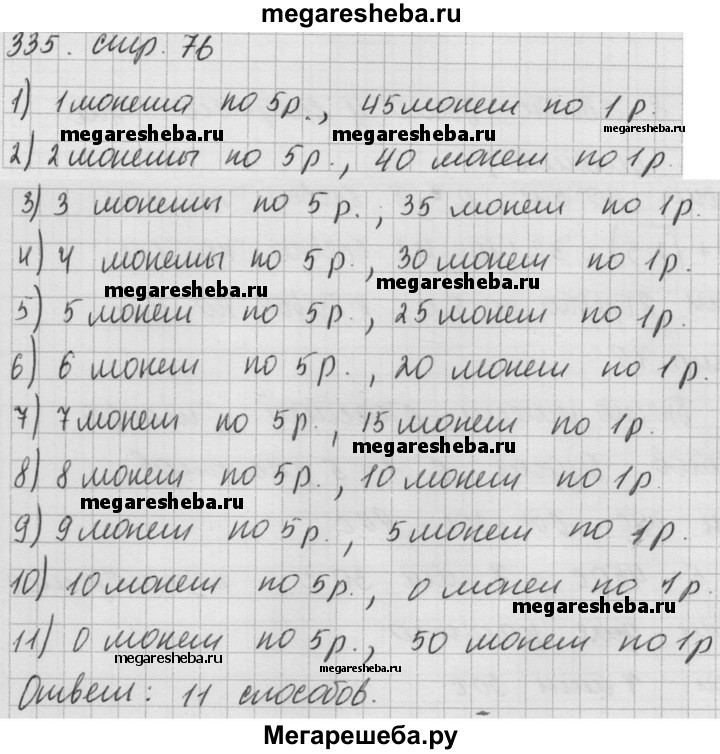 megaresheba.ru
335. стр. 76
1) 1 монета по 5 р., 45 монет по 1 р.
megaresheba.ru megaresheba.ru megaresheba.ru
2) 2 монеты по 5 р., 40 монет по 1 р.
3) 3 монеты по 5 р., 35 монет по 1 р.
4) 4 монеты по 5 р., 30 монет по 1 р.
megaresheba.ru megaresheba.ru
5) 5 монет по 5 р., 25 монет по 1 р.
6) 6 монет по 5 р., 20 монет по 1 р.
7) 7 монет по 5 р., 15 монет по 1 р.
megaresheba.ru
8) 8 монет по 5 р., 10 монет по 1 р.
megaresheba.ru
9) 9 монет по 5 р., 5 монет по 1 р.
10) 10 монет по 5 р., 0 монет по 1 р.
megaresheba.ru
11) 0 монет по 5 р., 50 монет по 1 р
megaresheba.ru megaresheba.ru
Ответ: 11 способов.
Мегарешеба.ру